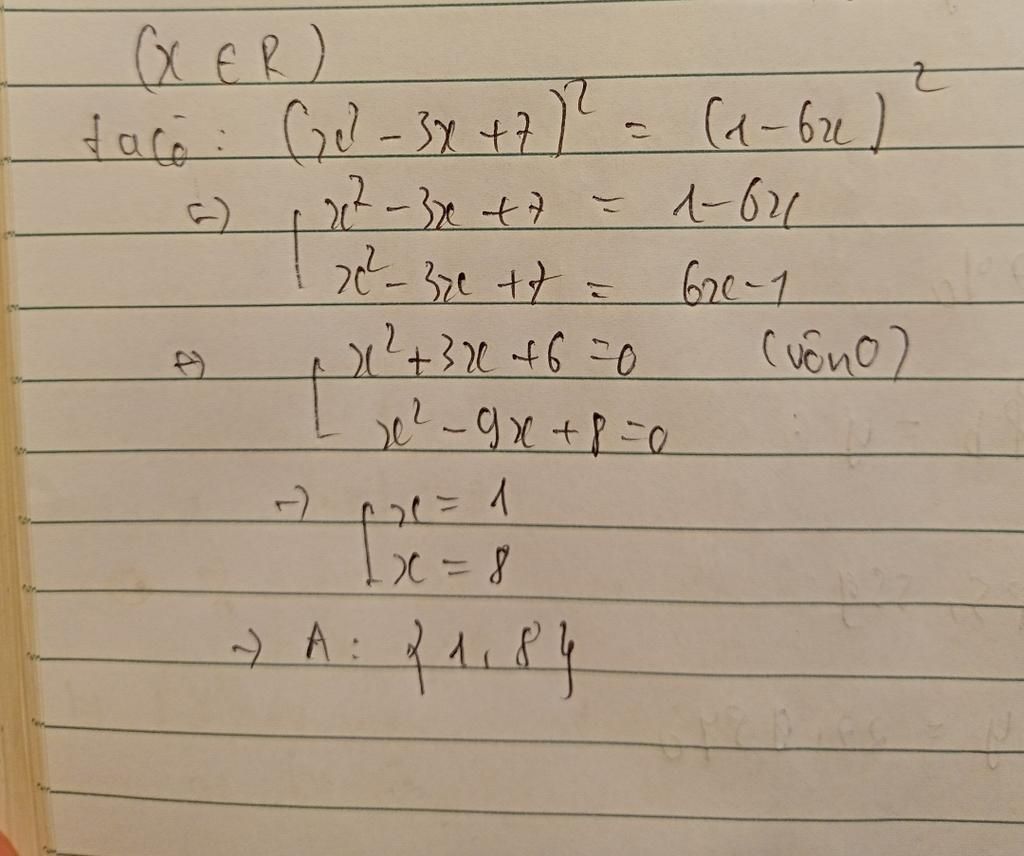 (x ∈ R)
ta có: (x² - 3x + 7)² = (1 - 6x)²
=> [ x² - 3x + 7 = 1 - 6x
x² - 3x + 7 = 6x - 1
<=> [ x² + 3x + 6 = 0 (vô n0)
x² - 9x + 8 = 0
=> [ x = 1
x = 8
=> A: {1, 8}